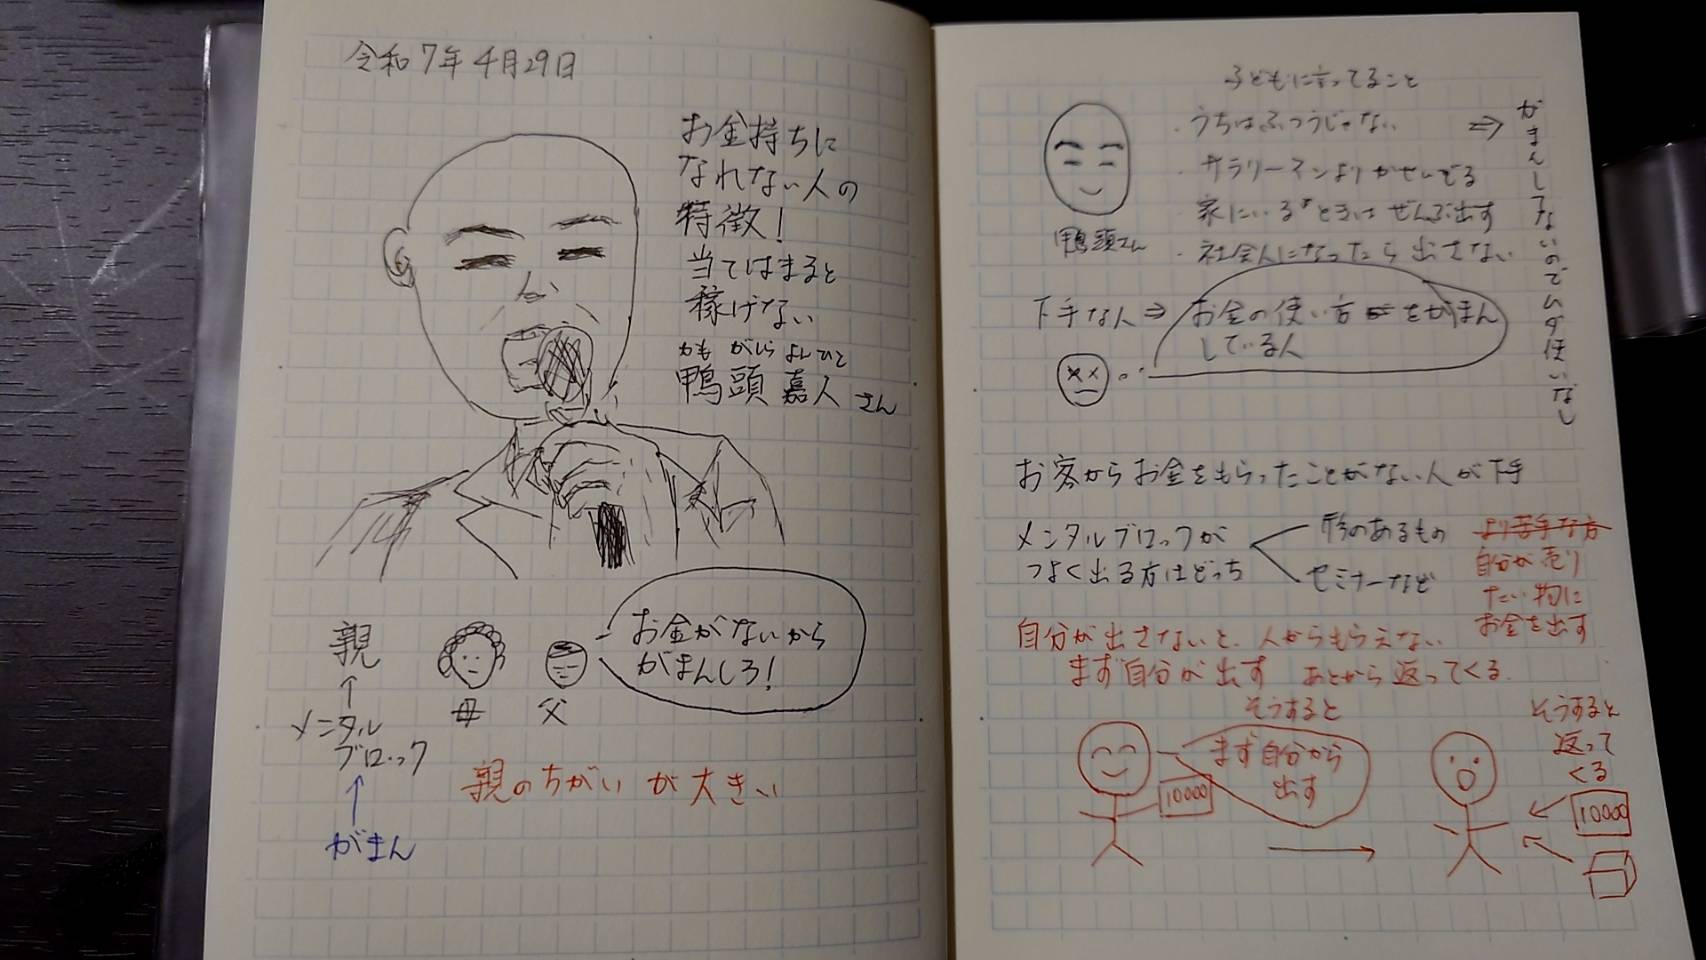 令和7年4月29日
お金持ちに
なれない人の
特徴!
当てはまると
稼げない
かも がしら よしひと
鴨頭 嘉人 さん
親
メンタル
ブロック
がまん
母
父
お金がないから
がまんしろ!
親のちがいが大きい
子どもに言ってること
・うちはふつうじゃない ⇒
・サラリーマンよりかせいでる
・家にいるときはぜんぶ出す
・社会人になったら出さない
がまんしてないのでムダ使いなし
鴨頭さん
下手な人⇒
お金の使い方をがまん
している人
お客からお金をもらったことがない人が下手
メンタルブロックが
つよく出る方はどっち
形のあるもの
セミナーなど
より苦手な方
自分が売り
たい物に
お金を出す
自分が出さないと、人からもらえない
まず自分が出す あとから返ってくる
そうすると
まず自分から
出す
10000
そうすると
返って
くる
10000